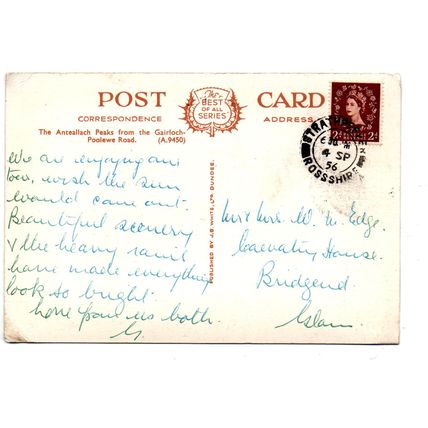 POST CARD
The
BEST
OF ALL
SERIES
CORRESPONDENCE
ADDRESS
The Anteallach Peaks from the Gairloch-
Poolewe Road. (A.9450)
We are enjoying our
tour, wish the sun
would come out.
Beautiful scenery
& the heavy rains
have made everything
look so bright.
Love from us both.
PUBLISHED BY J.B. WHITE, LTD. DUNDEE.
4 SP
56
ROSSSHIRE
2d 2d
Mr & Mrs. W. M. Edge.
House.
Bridgend.